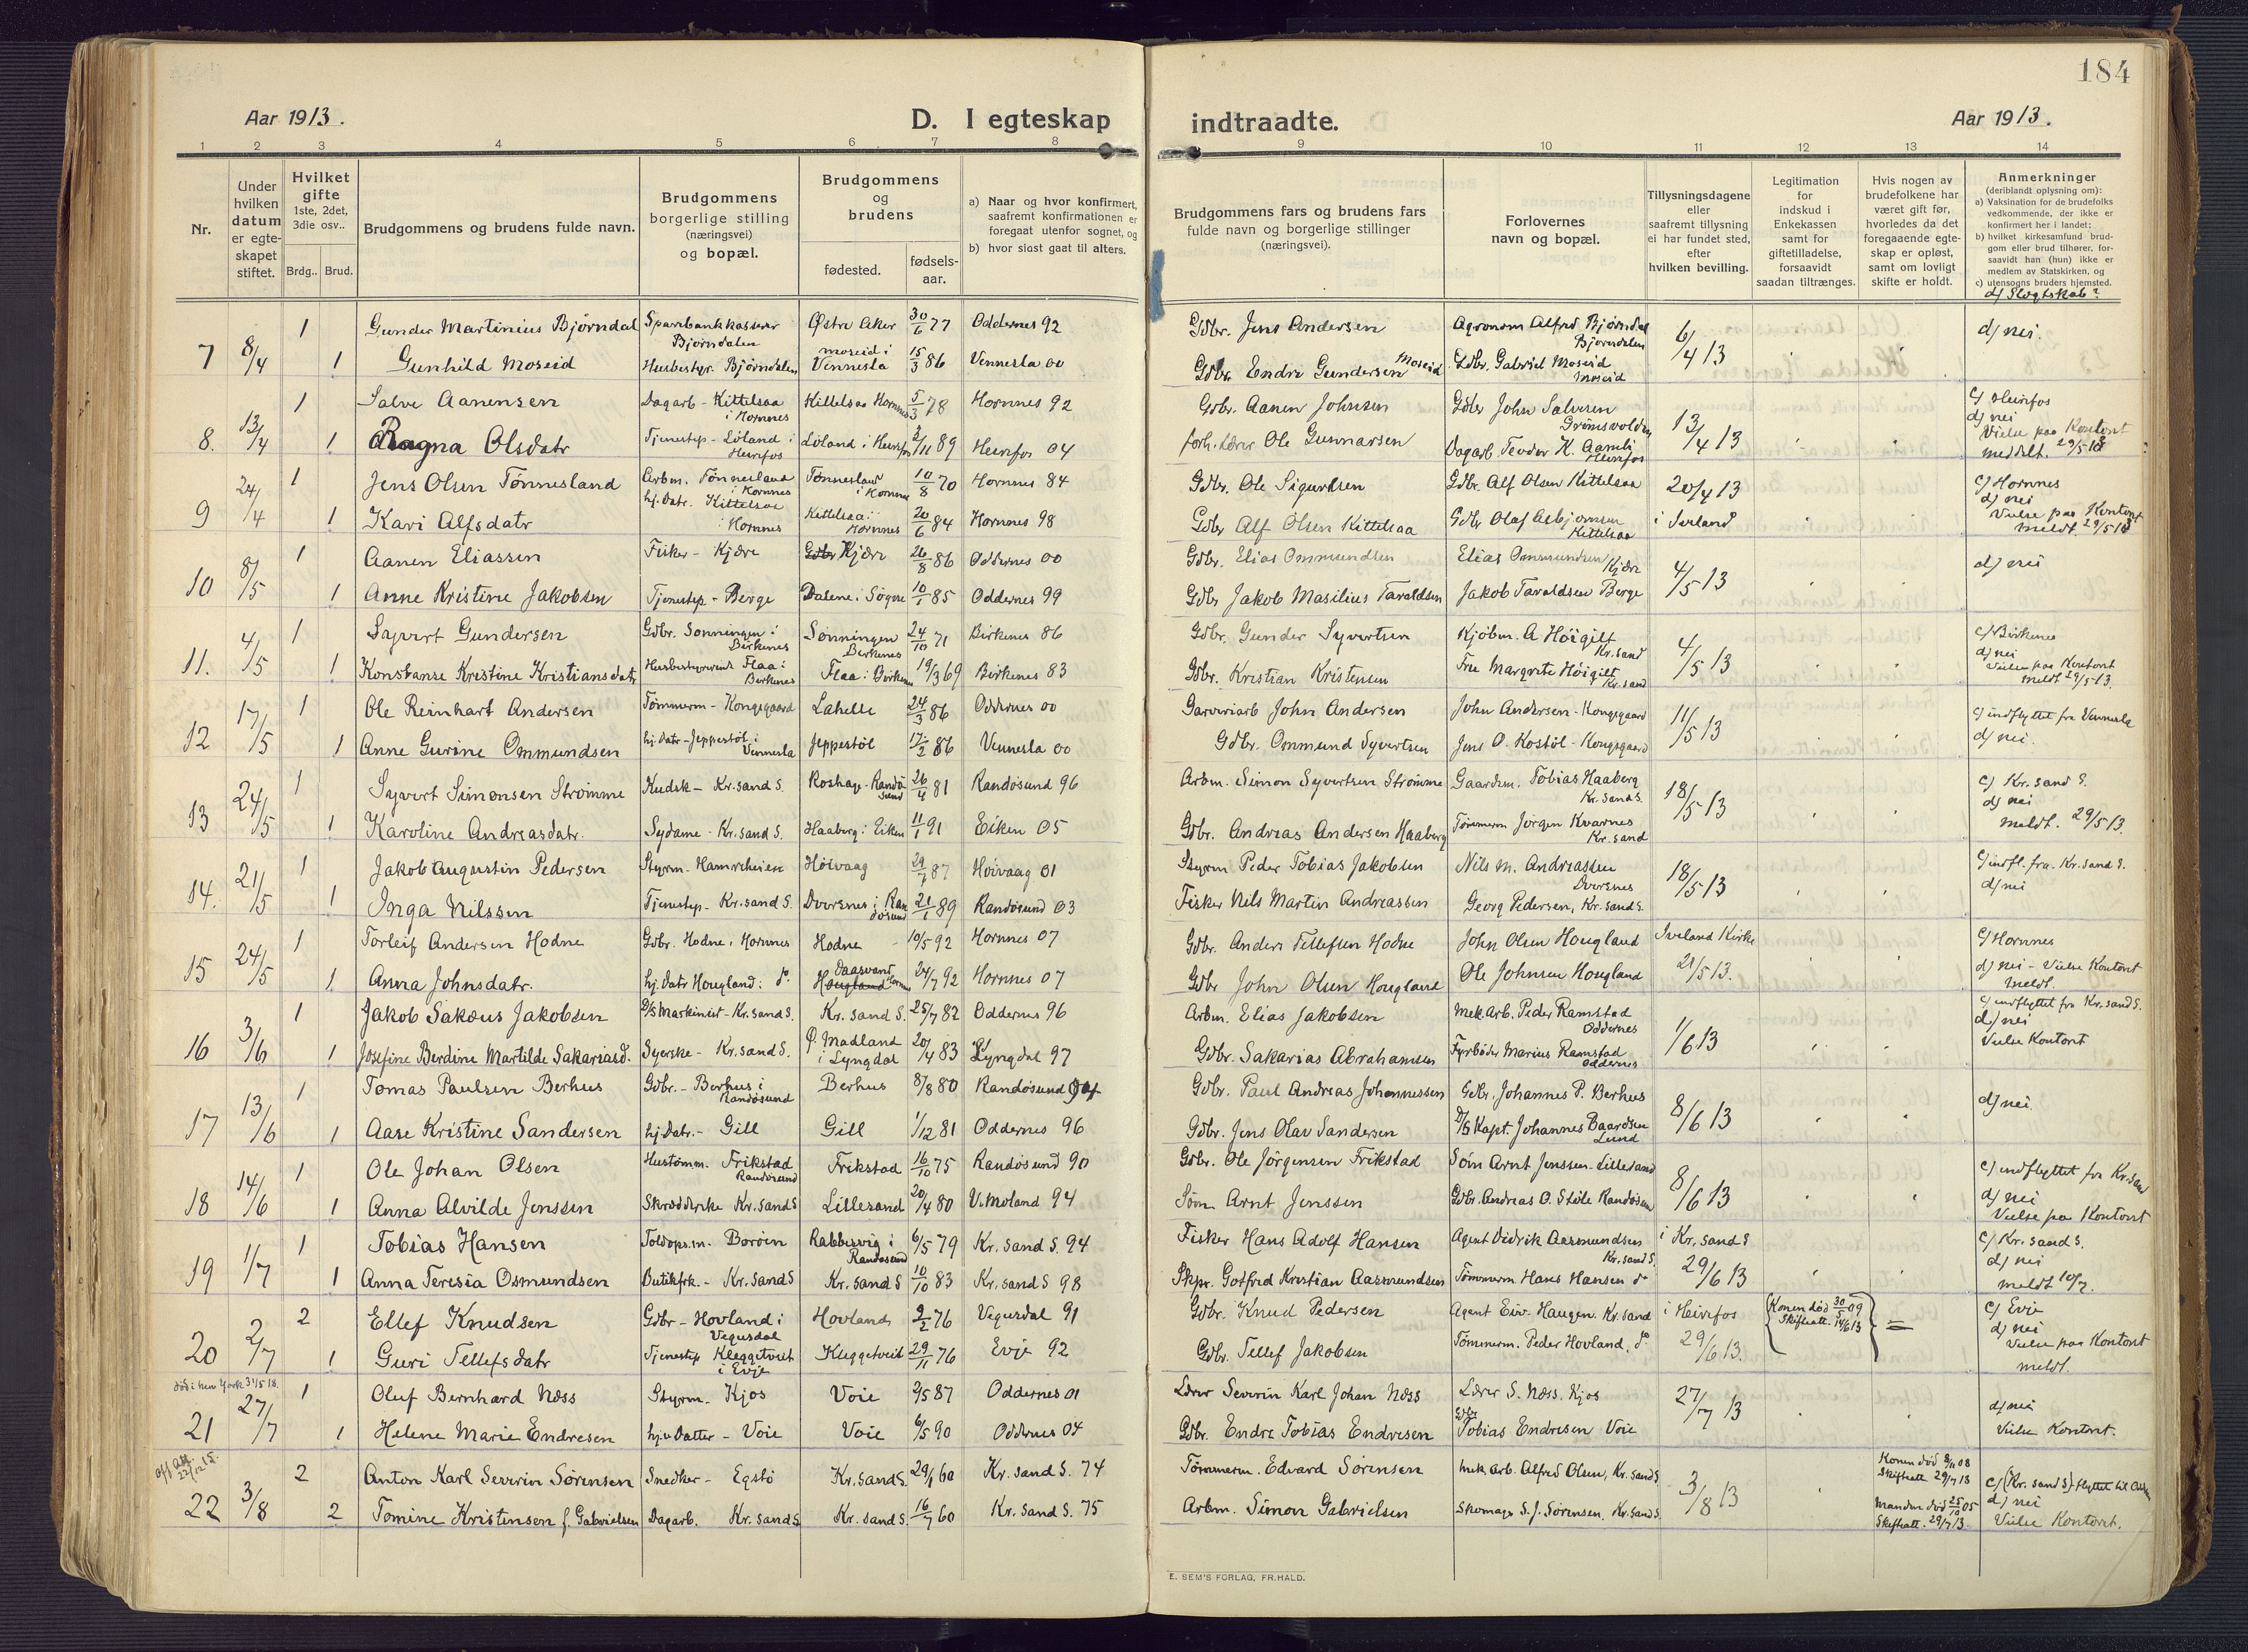 184
Aar 1913.
D. I egteskap indtraadte.
Aar 1913.
1 2 3 4 5 6 7 8 9 10 11 12 13 14
Nr.
Under hvilken datum er egte-skapet stiftet.
Hvilket gifte 1ste, 2det, 3die osv..
Brdg.. Brud.
Brudgommens og brudens fulde navn.
Brudgommens borgerlige stilling (næringsvei) og bopæl.
Brudgommens og brudens
fødested. fødsels-aar.
a) Naar og hvor konfirmert, saafremt konfirmationen er foregaat utenfor sognet, og
b) hvor sidst gaat til alters.
Brudgommens fars og brudens fars fulde navn og borgerlige stillinger (næringsvei).
Forlovernes navn og bopæl.
Tillysningsdagene eller saafremt tillysning ei har fundet sted, efter hvilken bevilling.
Legitimation for indskud i Enkekassen samt for giftetilladelse, forsaavidt saadan tiltrænges.
Hvis nogen av brudefolkene har været gift før, hvorledes da det foregaaende egte-skap er opløst, samt om lovligt skifte er holdt.
Anmerkninger (deriblandt oplysning om):
a) Vaksination for de brudefolks vedkommende, der ikke er konfirmert her i landet;
b) hvilket kirkesamfund brud-gom eller brud tilhører, for-saavidt han (hun) ikke er medlem av Statskirken, og
c) utensogns bruders hjemsted.
d) Slegtskab?
7 8/4 1 Gunder Martinius Bjørndal Sparebankkasserer Bjørndalen Østre Aker 30/6 77 Oddernes 92 Gdbr. Jens Andersen Agronom Alfred Bjørndal Bjørndalen 6/4 13 d) nei.
1 Gunhild Moseid Husbestyr. Bjørndalen Moseid i Vennesla 15/3 86 Vennesla 00 Gdbr. Endre Gundersen Moseid Gdbr. Gabriel Moseid Moseid
8. 13/4 1 Salve Aanensen Dagarb - Kittelsaa i Hornnes Kittelsaa Hornnes 5/3 78 Hornnes 92 Gdbr. Aanen Johnsen Gdbr John Salvesen 13/4 13 c) Heirefos d) nei
1 Ragna Olsdatr Tjenestep - Løland i Heirefos Løland i Heirefos 2/11 89 Heirefos 04 forh. Lærer Ole Gunnarsen Dagarb. Teodor K. Aamli Heirefos Vielse paa Kontoret meddelt. 29/5-13
9 24/4 1 Jens Olsen Tönnesland Arbm. Tönnesland i Hornnes Tönnesland i Hornnes 10/8 70 Hornnes 84 Gdbr. Ole Sigurdsen Gdbr. Alf Olsen Kittelsaa 20/4 13 c) Hornnes d) nei
1 Kari Alfsdatr hj. datr. Kittelsaa i Hornnes Kittelsaa i Hornnes 20/6 84 Hornnes 98 Gdbr Alf Olsen Kittelsaa Gdbr Olaf Asbjørnsen Kittelsaa i Iveland Vielse paa Kontoret meldt. 29/5 13
10 8/5 1 Aanen Eliassen Fisker - Kjære Kjære 26/8 86 Oddernes 00 Gdbr. Elias Ommundsen Elias Ommundsen Kjære 4/5 13 d) nei
1 Anne Kristine Jakobsen Tjenestep - Berge Dalene i Søgne 10/1 85 Oddernes 99 Gdbr Jakob Masilius Taraldsen Jakob Taraldsen Berge
11. 4/5 1 Syvert Gundersen Gdbr. Sonningen i Birkenes Sonningen Birkenes 24/10 71 Birkenes 86 Gdbr. Gunder Syvertsen Kjøbm. A Höigilt Kr.sand 4/5 13 c) Birkenes d) nei
1 Konstanse Kristine Kristiansdatr Husbestyrerinde Flaa i Birkenes Flaa i Birkenes 19/3 69 Birkenes 83 Gdbr. Kristian Kristensen Fru Margrete Höigilt Kr.sand Vielse paa Kontoret meldt 29/5-13.
12 17/5 1 Ole Reinhart Andersen Tömmerm - Kongsgaard Lahelle 24/3 86 Oddernes 00 Garveriarb John Andersen John Andersen - Kongsgaard 11/5 13 c) indflyttet fra Vennesla d) nei.
1 Anne Gurine Ommundsen hj. datr - Jeppestöl i Vennesla Jeppestöl 17/2 86 Vennesla 00 Gdbr. Ommund Syvertsen Jens O. Kostöl - Kongsgaard
13 24/5 1 Syvert Simonsen Strømme Kudsk - Kr.sand S. Roshap - Randösund 26/4 81 Randösund 96 Arbm. Simon Syvertsen Strømme Gaardsm. Tobias Haaberg Kr.sand S. 18/5 13 c) Kr.sand S. d) nei
1 Karoline Andreasdatr. Sydame - Kr.sand S. Haaberg i Eiken 11/1 91 Eiken 05 Gdbr. Andreas Andersen Haaberg Tömmerm Jörgen Kvarnes Kr.sand Meldt. 29/5 13.
14. 21/5 1 Jakob Augustin Pedersen Styrm - Hamreheien Höivaag 29/7 87 Höivaag 01 Styrm Peder Tobias Jakobsen Nils M. Andreassen Dvorsnes 18/5 13 c) indfl. fra. Kr.sand S. d) nei
1 Inga Nilssen Tjenestep - Kr.sand S. Dvorsnes i Randösund 21/1 89 Randösund 03 Fisker Nils Martin Andreassen Georg Pedersen, Kr.sand S.
15 24/5 1 Torleif Andersen Hodne Gdbr. Hodne i Hornnes Hodne 10/5 92 Hornnes 07 Gdbr. Anders Tellefsen Hodne John Olsen Hougland Iveland Kirke c) Hornnes
1 Anna Johnsdatr. hj. datr Hougland i do Daasvand 24/7 92 Hornnes 07 Gdbr John Olsen Hougland Ole Johnsen Hougland 21/5 13. d) nei - Vielse Kontoret Meldt.
16 3/6 1 Jakob Sakæus Jakobsen D/S Maskinist - Kr.sand S. Kr.sand S. 25/7 82 Oddernes 96 Arbm. Elias Jakobsen Mek Arb. Peder Ramstad Oddernes 1/6 13 c) indflyttet fra Kr.sand S. d) nei
1 Josefine Berdine Martilde Sakariasd. Syerske - Kr.sand S. Ø. Madland i Lyngdal 20/4 83 Lyngdal 97 Gdbr. Sakarias Abrahamsen Fyrbøder Marius Ramstad Oddernes Vielse Kontoret
17 13/6 1 Tomas Paulsen Berhus Gdbr. - Berhus i Randösund Berhus 8/8 80 Randösund Gdbr. Paul Andreas Johannessen Gdbr. Johannes P. Berhus 8/6 13 d) nei.
1 Aase Kristine Sandersen hj. Datr. - Gill Gill 1/12 81 Oddernes 96 Gdbr. Jens Olav Sandersen D/S Kapt. Johannes Baardsen Lund
18 14/6 1 Ole Johan Olsen Hustømm. Frikstad Randösund Frikstad 16/10 75 Randösund 90 Gdbr. Ole Jörgensen Frikstad Søm Arnt Jenssen - Lillesand 8/6 13 c) indflyttet fra Kr.sand
1 Anna Alvilde Jenssen Skræderske Kr.sand S Lillesand 20/4 80 V. Moland 94 Søm Arnt Jenssen Gdbr. Andreas O. Støle Randösun d) nei Vielse paa Kontoret
19 1/7 1 Tobias Hansen Toldops.m. Boröen Rabbersvig i Randösund 6/5 79 Kr.sand S. 94 Fisker Hans Adolf Hansen Agent Didrik Aasmundsen Kr.sand S. i Kr.sand S c) Kr.sand S.
1 Anna Teresia Osmundsen Butikfrk. - Kr.sand S Kr.sand S 10/10 83 Kr.sand S 98 Skpr. Gotfred Kristian Aasmundsen Tømmerm. Hans Hansen do 29/6 13 d) nei meldt 10/7.
20 2/7 2 Ellef Knudsen Gdbr - Hovland i Vegusdal Hovland 2/2 76 Vegusdal 91 Gdbr. Knud Pedersen Agent Eiv. Haugen. Kr.sand i Heirefos Konen död 30/5 09 Skifteatt. 14/6 13 = c) Evje d) nei
1 Guri Tellefsdatr Tjenestep Kleggetveit i Evje Kleggetveit 29/11 76 Evje 92 Gdbr. Tellef Jakobsen Tömmerm. Peder Hovland, do 29/6 13. Vielse paa Kontoret meldt.
død i New York 31/5 18.
21 27/7 1 Oluf Bernhard Næss Styrm. Kjos Voie 2/5 87 Oddernes 01 Lærer Severin Karl Johan Næss Lærer S. Næss. Kjos 27/7 13 d) nei
1 Helene Marie Endresen hj.v. Datter - Voie Voie 6/5 90 Oddernes 04 Gdbr. Endre Tobias Endresen Gdbr Tobias Endresen Voie Vielse Kontoret.
22/12 15.
22 3/8 2 Anton Karl Severin Sørensen Snedker - Egstö Kr.sand S. 29/1 60 Kr.sand S. 74 Tömmerm. Edvard Sörensen Mek Arb. Alfred Olsen, Kr.sand S. 3/8 13 Konen død 8/11 08 Skifteatt 29/7 13 c) (Kr.sand S) flyttet til
2 Tomine Kristensen f. Gabrielsen Dagarb. Kr.sand S Kr.sand S. 16/7 60 Kr.sand S. 75 Arbm. Simon Gabrielsen Skomager S. J. Sørensen. Kr.sand S. Manden død 25/10 05 Skifteatt. 29/7 13. d) nei Vielse Kontoret.
E. SEM'S FORLAG, FR.HALD.